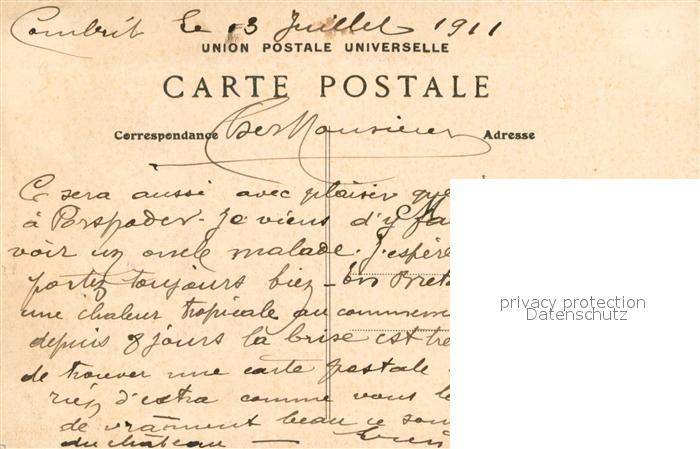 Combrit le 13 Juillet 1911
UNION POSTALE UNIVERSELLE
CARTE POSTALE
Correspondance Cher Monsieur Adresse
Ce sera aussi avec plaisir que
à Porspoder. Je viens d'y fa
voir un oncle malade. J'espère
portez toujours bien – En Breta
une chaleur tropicale au commencem
depuis 8 jours la brise est tre
de trouver une carte postale
rien d'extra comme vous le
de vraiment beau ce son
du château —
privacy protection
Datenschutz